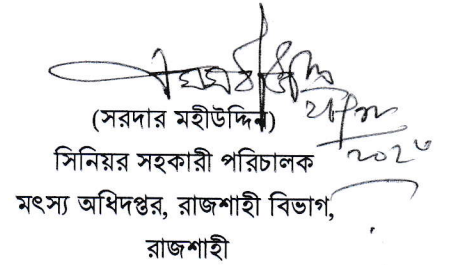 (সরদার মহীউদ্দিন)
সিনিয়র সহকারী পরিচালক
মৎস্য অধিদপ্তর, রাজশাহী বিভাগ,
রাজশাহী